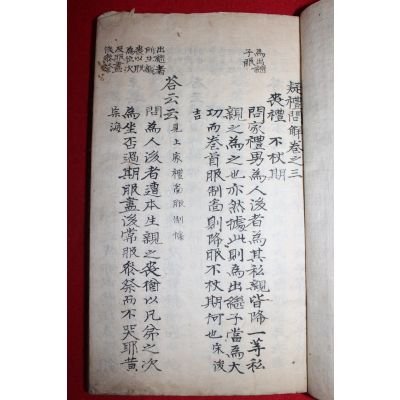 疑禮問解卷之三
喪禮 不杖期
為出繼
子服
問家禮男為人後者為其私親皆降一等私
親之為之也亦然據此則為出繼子當為大
功而卷首服制啚則降服不杖期何也 宋浚
吉
答云云 見上家禮啚服制條
出繼者
所生親
喪以服
為位次
及服盡
後參祭
問為人後者遭本生親之喪猶以凡弟之次
為坐否過期服盡後常服參祭而不哭耶 黃
宗海